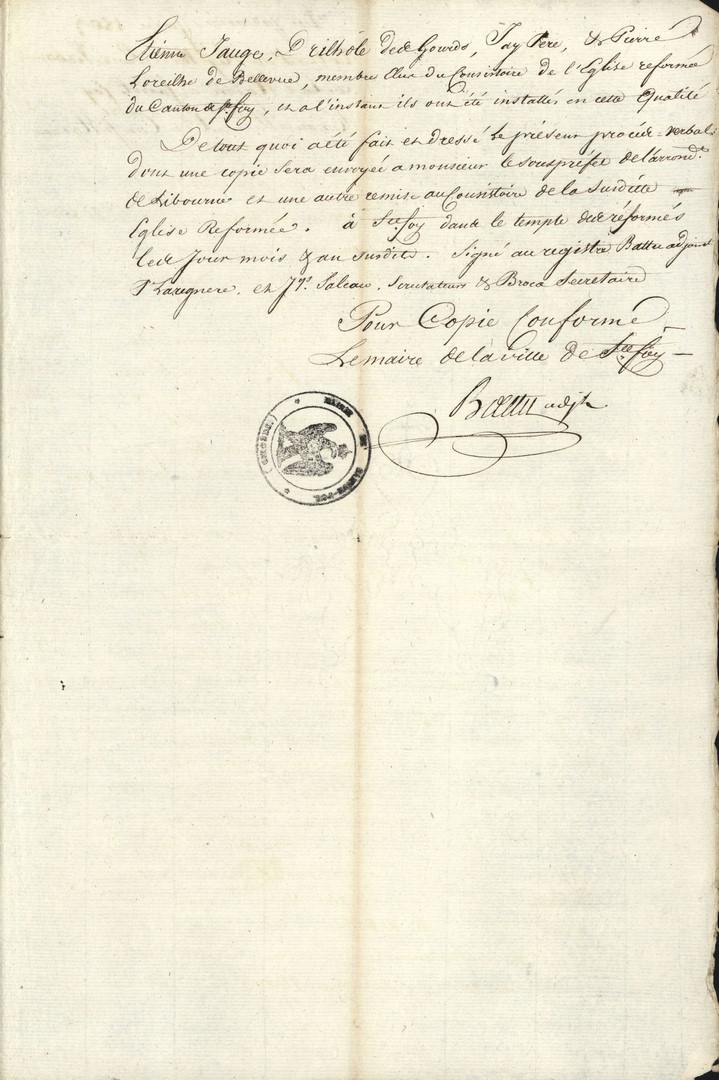 Etienne Jauge, Drilhole de de Gourds, Jay Pere, & Pierre
Loreilhe de Bellevue, membres élus du Consistoire de l'Eglise reformée
du Canton de Ste foy, et a l'instant ils ont été installés en cette qualité
De tout quoi a été fait et dressé le présent procès-verbal
dont une copie sera envoyée a monsieur le souspréfet de l'arrondt
de Libourne et une autre remise au Consistoire de la susditte
Eglise Reformée. à Ste foy dans le temple des réformés
les Jour mois & an susdits. Signé au registre Battu adjoint
Lavignere, et Jn Saleau, Scrutateurs & Broca Secretaire
Pour Copie Conforme
Le maire de la ville de Ste foy
Battu adjt
MAIRIE DE SAINTE-FOY
(GIRONDE.)